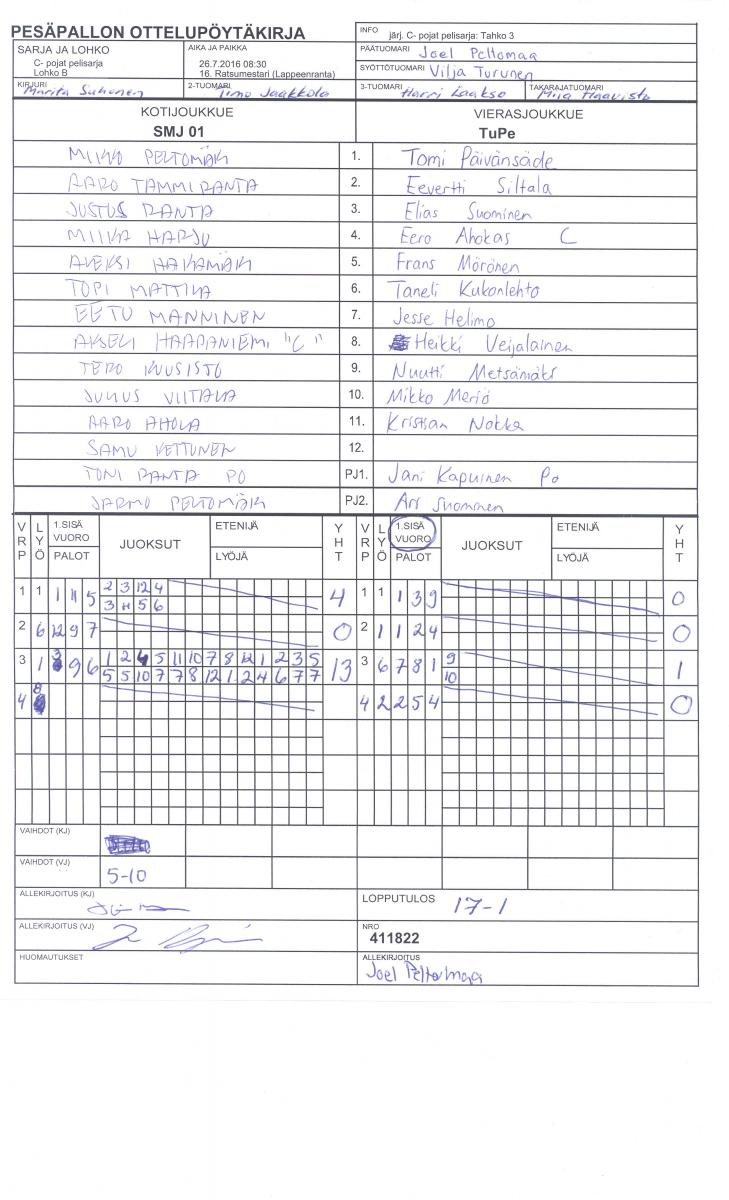 PESÄPALLON OTTELUPÖYTÄKIRJA
INFO järj. C- pojat pelisarja: Tahko 3
SARJA JA LOHKO
C- pojat pelisarja
Lohko B
AIKA JA PAIKKA
26.7.2016 08:30
16. Ratsumestari (Lappeenranta)
PÄÄTUOMARI Joel Peltomaa
SYÖTTÖTUOMARI Vilja Turunen
KIRJURI Marita Suhonen
2-TUOMARI Timo Jaakkola
3-TUOMARI Harri Laakso
TAKARAJATUOMARI Miia Haavisto
KOTIJOUKKUE
SMJ 01
VIERASJOUKKUE
TuPe
MIIKO PELTOMÄKI 1. Tomi Päivänsäde
AARO TAMMIRANTA 2. Eevertti Siltala
JUSTUS RANTA 3. Elias Suominen
MIIKA HARJU 4. Eero Ahokas C
ALEKSI HAKAMÄKI 5. Frans Mörönen
TOPI MATTILA 6. Taneli Kukonlehto
EETU MANNINEN 7. Jesse Helimo
AKSELI HAAPANIEMI "C" 8. Heikki Veijalainen
TERO KUUSISTO 9. Nuutti Metsämäki
JULIUS VIITALA 10. Mikko Meriö
AARO AHOLA 11. Kristian Nokka
SAMU VETTUNEN 12.
TONI RANTA PO PJ1. Jani Kapuinen Po
JARMO PELTOMÄKI PJ2. Ari Suominen
VRP LYÖ 1.SISÄ VUORO PALOT JUOKSUT ETENIJÄ LYÖJÄ YHT VRP LYÖ 1.SISÄ VUORO PALOT JUOKSUT ETENIJÄ LYÖJÄ YHT
1 1 1 11 5 2 3 12 4 4 1 1 1 3 9 0
3 11 5 6
2 6 12 9 7 0 2 1 1 2 4 0
3 1 3 9 6 1 2 4 5 11 10 7 8 12 1 2 3 5 13 3 6 7 8 1 9 1
5 5 10 7 7 8 12 1 2 4 6 7 7 10
4 8 4 2 2 5 4 0
VAIHDOT (KJ)
VAIHDOT (VJ)
5-10
ALLEKIRJOITUS (KJ)
LOPPUTULOS 17-1
ALLEKIRJOITUS (VJ)
NRO
411822
HUOMAUTUKSET
ALLEKIRJOITUS
Joel Peltomaa